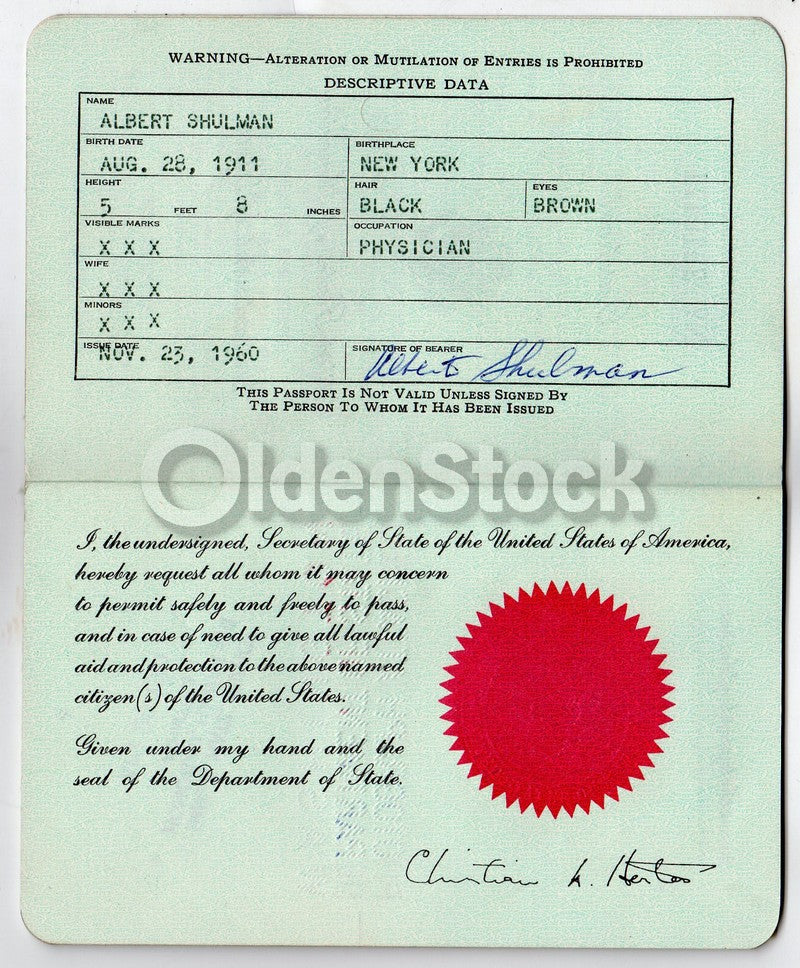 WARNING—Alteration or Mutilation of Entries is Prohibited
DESCRIPTIVE DATA
NAME
ALBERT SHULMAN
BIRTH DATE
AUG. 28, 1911
BIRTHPLACE
NEW YORK
HEIGHT
5 FEET 8 INCHES
HAIR
BLACK
EYES
BROWN
VISIBLE MARKS
X X X
OCCUPATION
PHYSICIAN
WIFE
X X X
MINORS
X X X
ISSUE DATE
NOV. 23, 1960
SIGNATURE OF BEARER
Albert Shulman
This Passport Is Not Valid Unless Signed By
The Person To Whom It Has Been Issued
OldenStock
I, the undersigned, Secretary of State of the United States of America,
hereby request all whom it may concern
to permit safely and freely to pass,
and in case of need to give all lawful
aid and protection to the above named
citizen(s) of the United States.
Given under my hand and the
seal of the Department of State.
Christian A. Herter